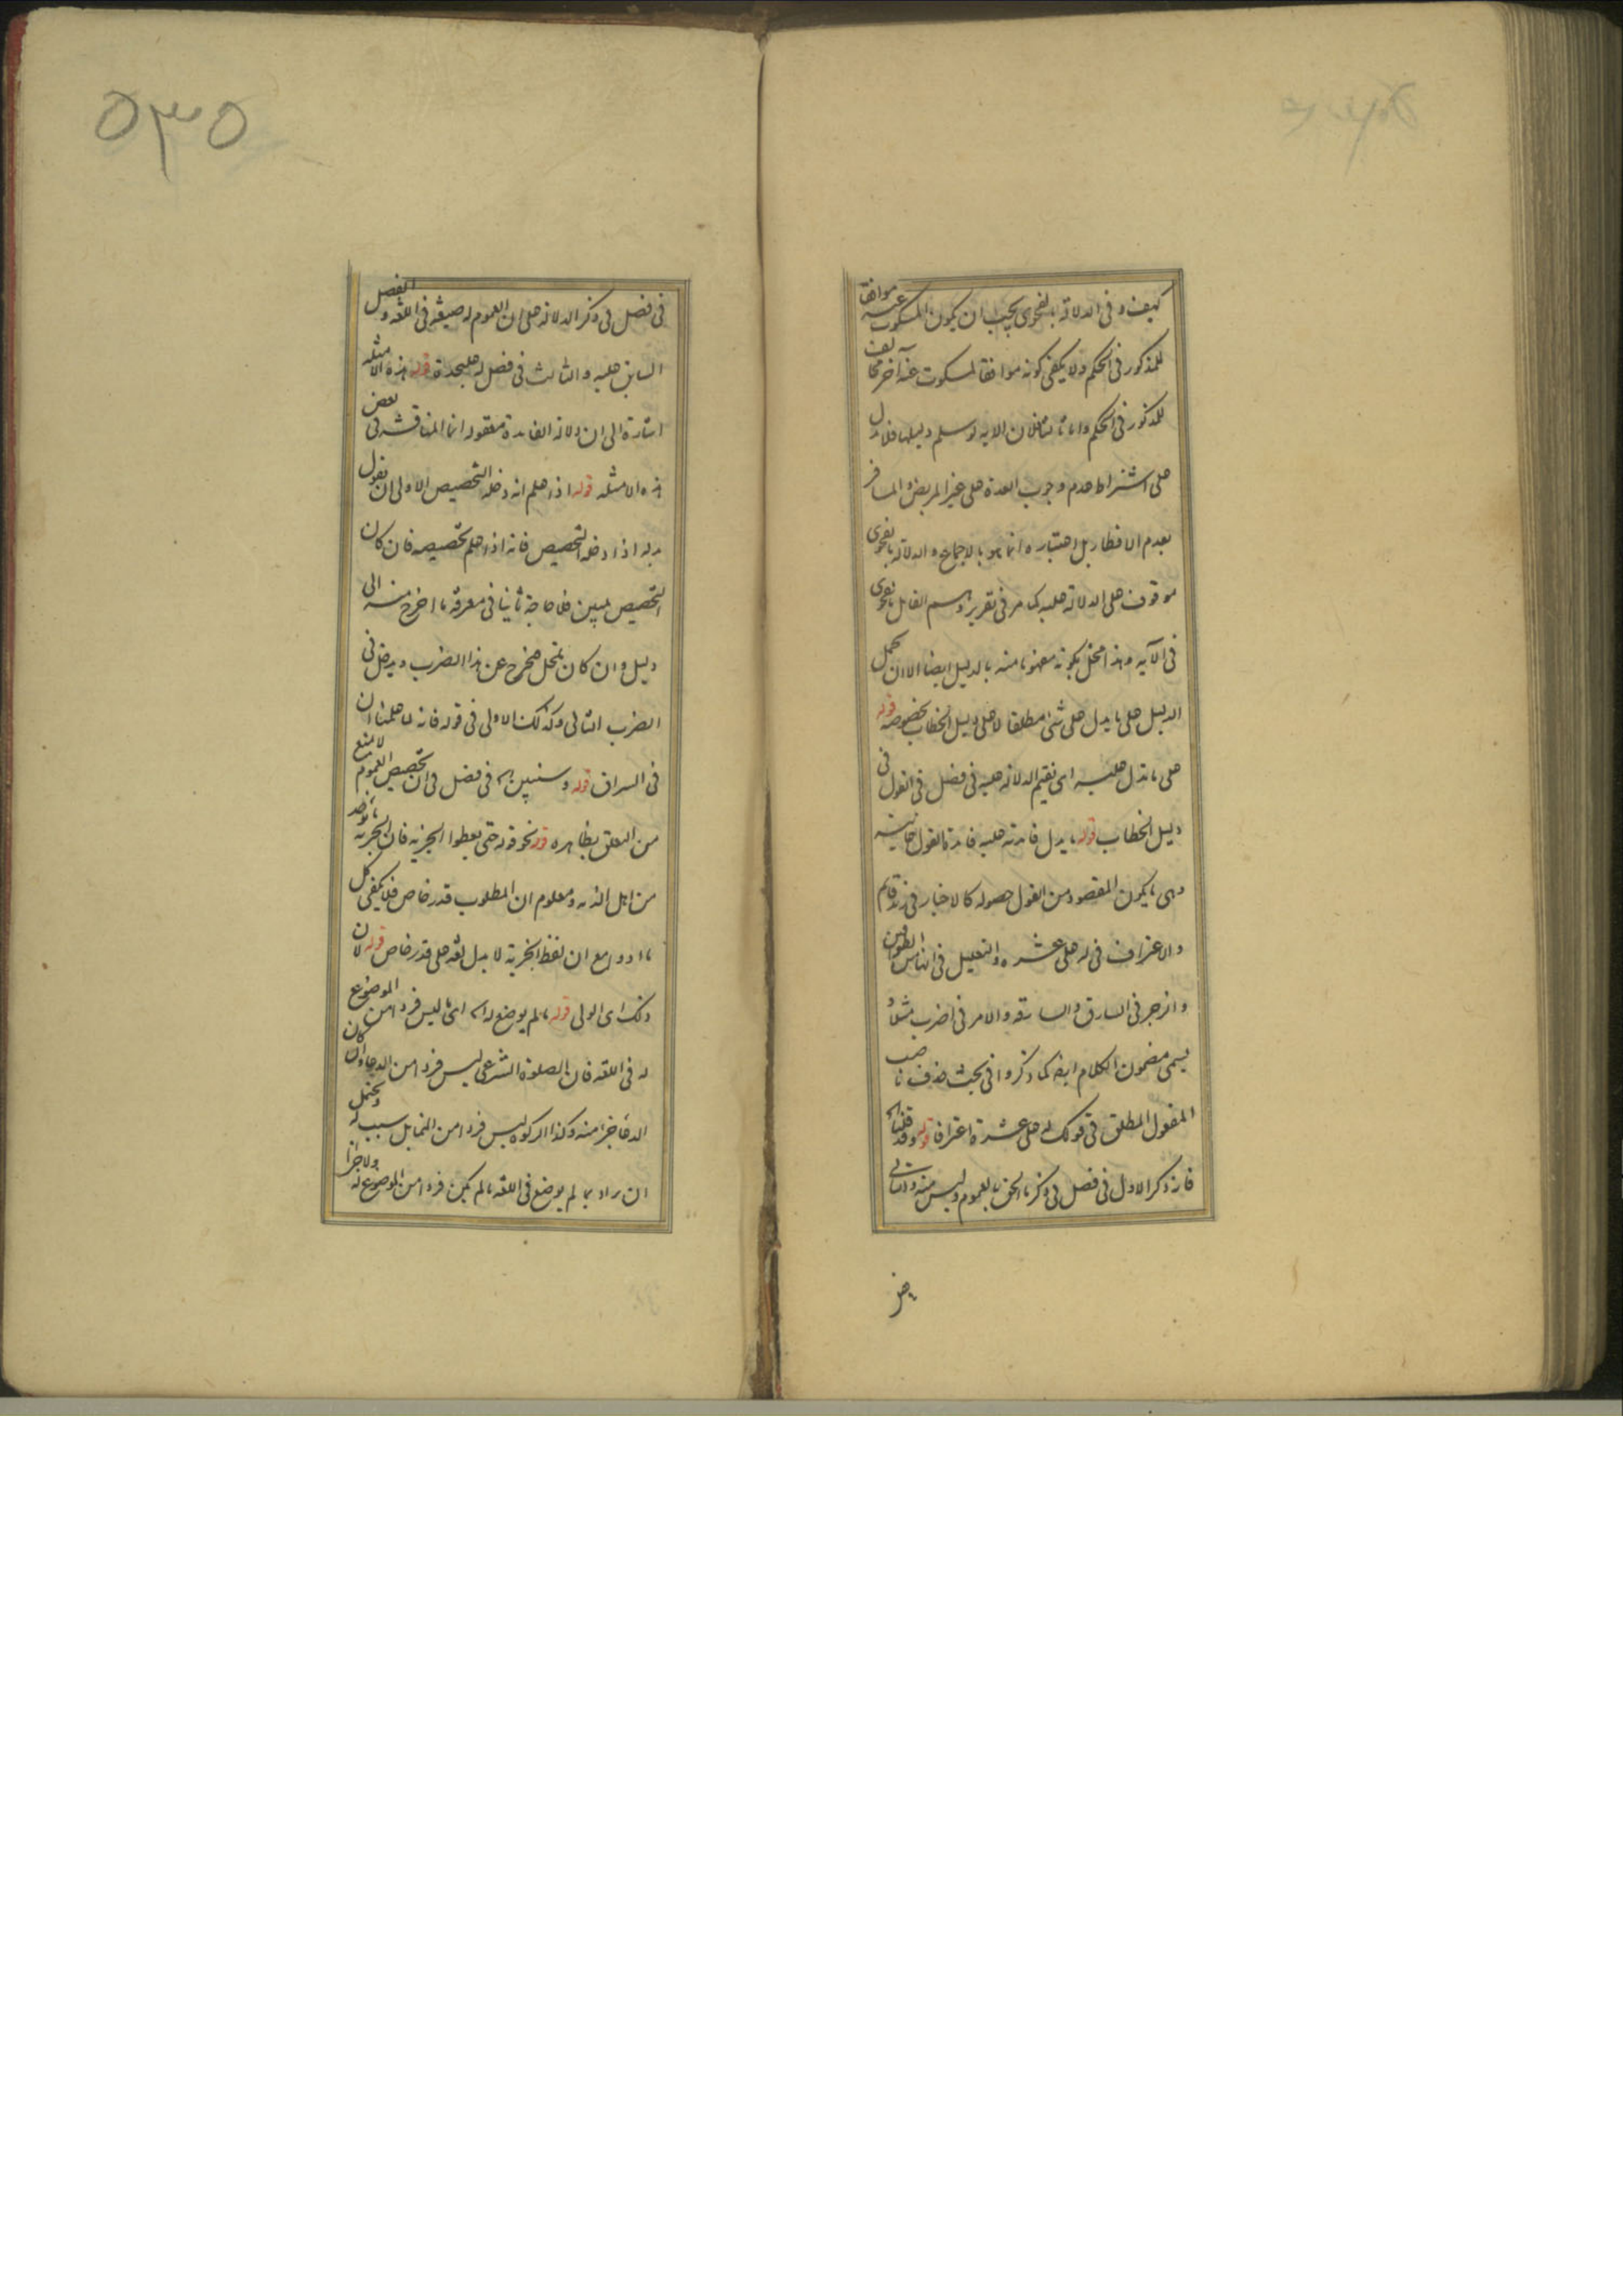 كيف و فى الدلالة بالفحوى يجب ان يكون المسكوت عنه موافقا
للمذكور فى الحكم ولا يكفى كونه موافقا لمسكوت عنه آخر مخالف
للمذكور فى الحكم واما ثالثا فلان الايه لو سلم دليلها فلا يدل
على اشتراط عدم وجوب العدة على غير المريض و المسافر
بعدم الافطار بل اعتباره انما هو بالاجماع و الدلالة بالفحوى
موقوف على الدلالة عليه كما مر فى تقرير وهم القائل بالفحوى
فى الآيه و هذا مخل بكونه مفهوما منه بالدليل ايضا الا ان يحمل
الدليل على ما يدل على شئ مطلقا لا على دليل الخطاب بخصوصه قوله
على ما تدل عليه اى نقيم الدلالة عليه فى فصل فى القول فى
دليل الخطاب قوله ما يدل فائدته عليه فائدة القول غايته
وهى ما يكون المقصود من القول حصوله كالاخبار فى زيد قائم
والاعتراف فى له على عشرة و التعليل فى الناس الطوافين
و الزجر فى السارق و السارقه و الامر فى اضرب مثلا و
يسمى مضمون الكلام ايضا كما ذكروا فى بحث حذف ناصب
المفعول المطلق فى قولك له على عشرة اعترافا قوله و قد قلنا
فانه ذكر الاول فى فصل فى ذكر ما الحق بالعموم و ليس منه و الثانى
فى فصل فى ذكر الدلالة على ان العموم له صيغة فى اللغة و الفصل
السابق عليه و الثالث فى فصل له عليحدة قوله هذه الامثله
اشارة الى ان دلالة الفائدة معقوله انما المناقشه فى بعض
هذه الامثله قوله اذا علم انه دخله التخصيص الاولى ان يقول
بدله اذا دخله التخصيص فانه اذا علم تخصيصه فان كان
التخصيص بمبين فلا حاجة ثانيا فى معرفة ما اخرج منه الى
دليل و ان كان بمجمل فيخرج عن هذا الضرب و يدخل فى
الضرب الثانى و كذلك الاولى فى قوله فانه لا علمنا ان
فى السراق قوله و سنبين ما فى فصل فى ان تخصيص العموم لا يمنع
من التعلق بظاهره قوله نحو قوله حتى يعطوا الجزيه فان الجزيه ما يؤخذ
من اهل الذمه و معلوم ان المطلوب قدر خاص فلا يكفى كل
ما ادوه مع ان لفظ الجزية لا يدل لغة على قدر خاص قوله لان
ذلك اى الولى قوله ما لم يوضع له اى ما ليس فردا من الموضوع
له فى اللغه فان الصلوة الشرعى ليس فردا من الدعاء و ان كان
الدعا جزء منه و كذا الزكوة ليس فردا من النما بل سبب له و يحتمل
ان يراد بما لم يوضع فى اللغه ما لم يكن فردا من الموضوع له و لا جزا
٥٣٥